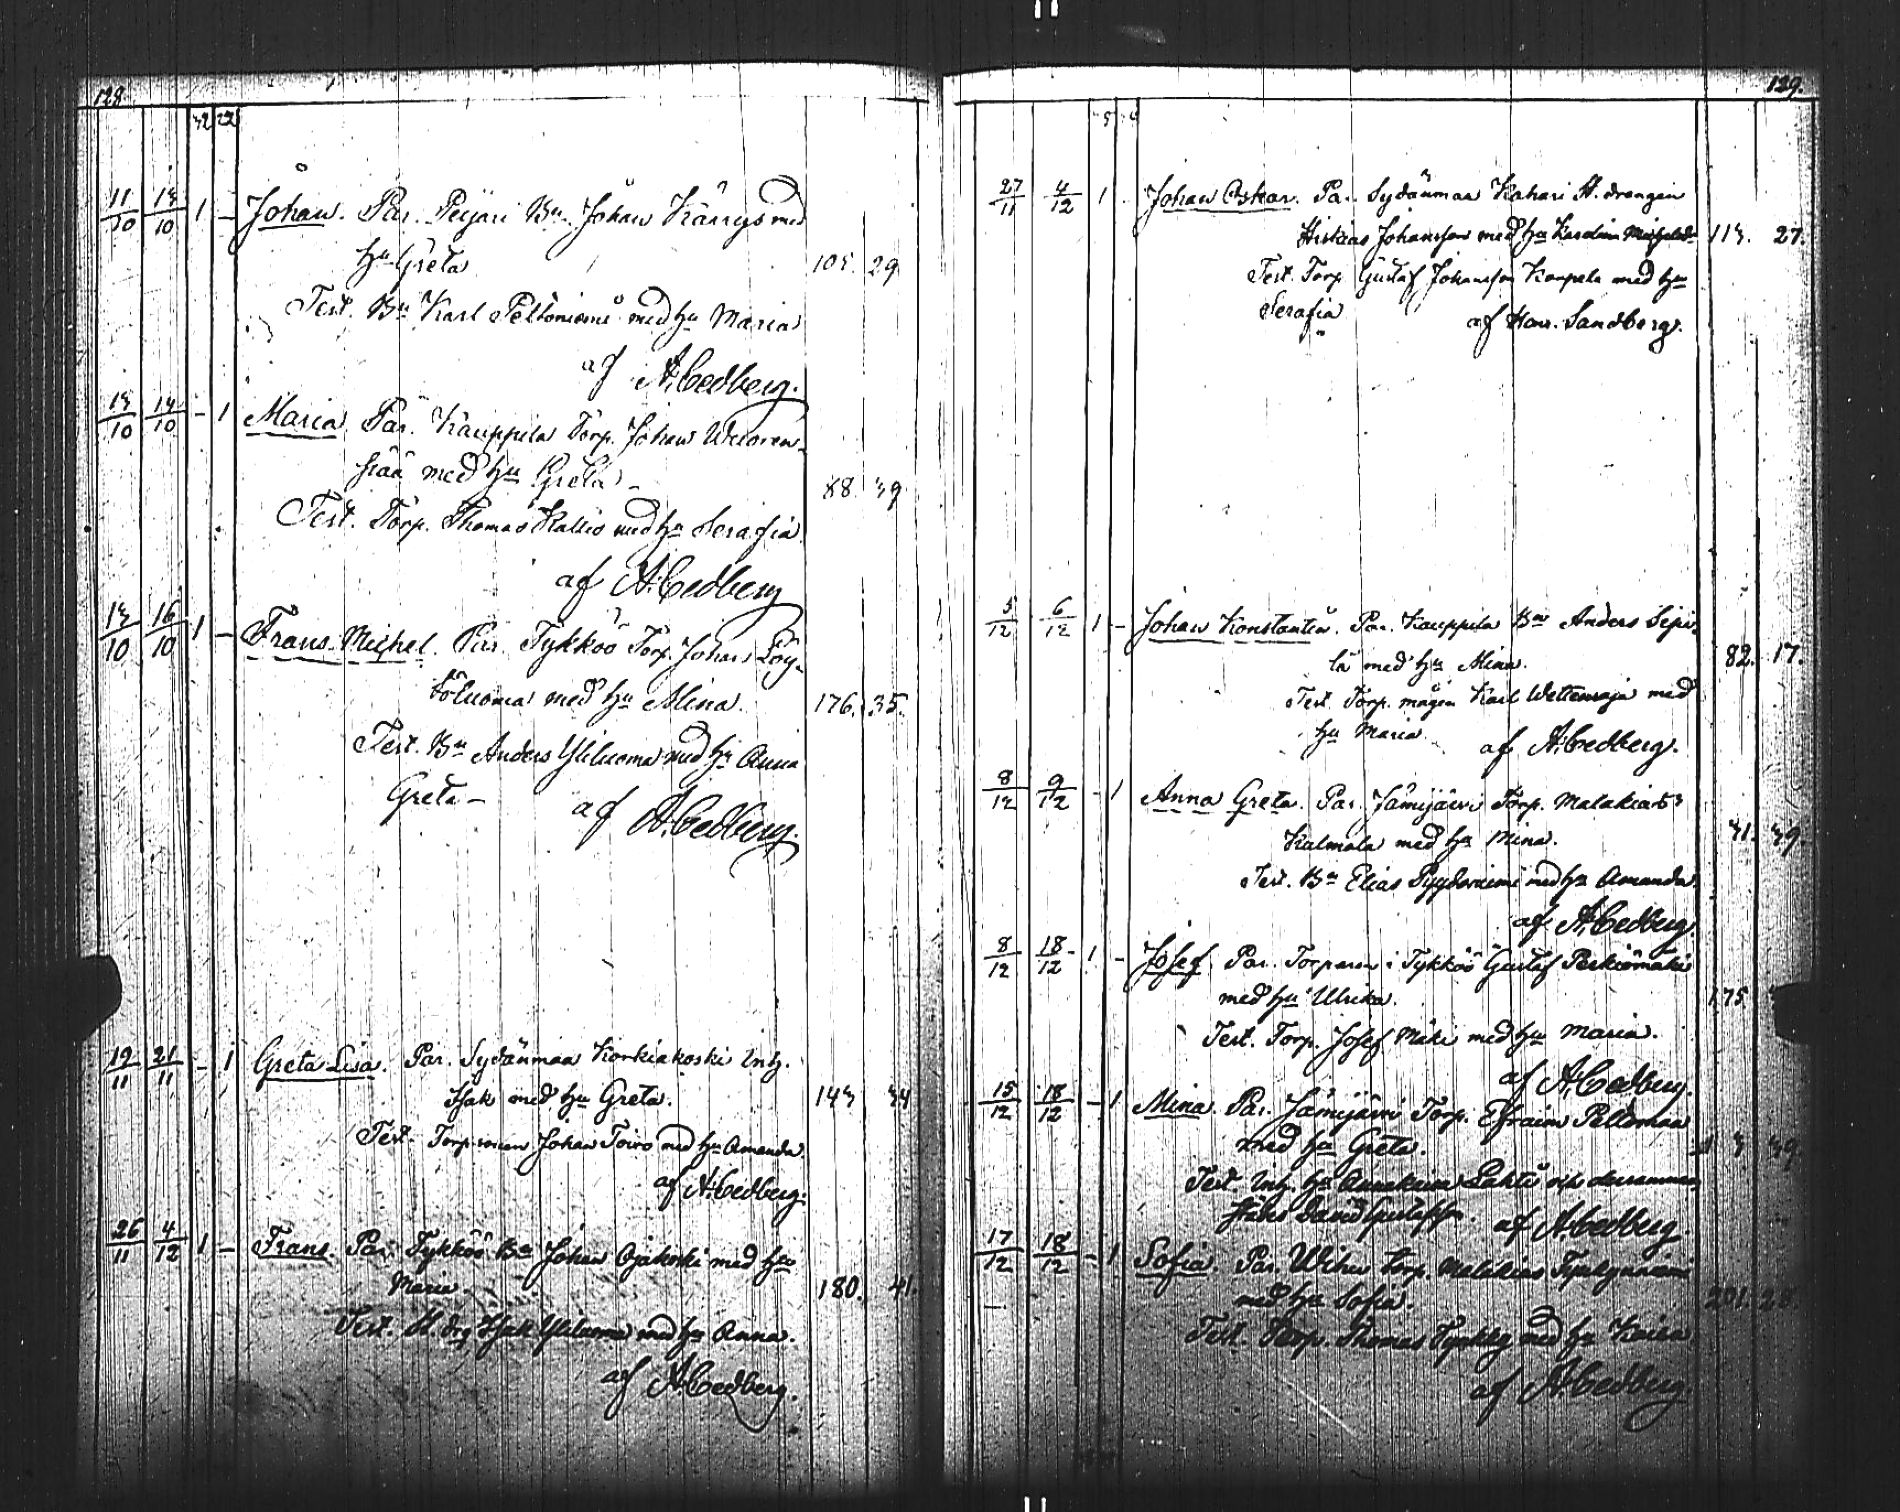 128
32 22
11/10 13/10 1 - Johan. Par. Peijari Bn Johan Kärrys med
hu Greta 105. 29.
Test. Bn Karl Peltoniemi med hu Maria
af A. Cedberg.
13/10 14/10 - 1 Maria Par. Kauppila Torp. Johan Wuoren-
pää med hu Greta - 88. 39
Test. Torp. Thomas Kallio med hu Serafia
af A. Cedberg
13/10 16/10 1 - Frans Michel. Par. Tykköö Torp. Johan Löy-
töluoma med hu Mina. 176. 35.
Test. Bn Anders Yliluoma med hu Anna
Greta - af A. Cedberg.
19/11 21/11 - 1 Greta Lisa. Par. Sydänmaa Korkiakoski Inh.
Isak med hu Greta. 143 34
Test. Torp.sonen Johan Toivo med hu Amanda.
af A. Cedberg.
26/11 4/12 1 - Frans. Par. Tykköö Bn Johan Ojakoski med hu
Maria 180. 41.
Test. A. drg Isak Yliluoma med hu Anna.
af A. Cedberg.
129.
27/11 4/12 1 Johan Oskar. Par. Sydänmaa Kahari A. drengen
Hiskias Johansson med hu Karolina 113. 27.
Test. Torp. Gustaf Johansson Korpela med hu
Serafia af Han. Sandberg.
5/12 6/12 1 - Johan Konstantin. Par. Kauppila Bn Anders Sepi-
lä med hu Mina. 82. 17.
Test. Torp. mågen Karl Wettenmaja med
hu Maria af A. Cedberg.
8/12 9/12 - 1 Anna Greta. Par. Jämijärvi Torp. Malakias
Kulmala med hu Mina. 31. 39.
Test. Bn Elias Pyydysniemi med hu Amanda.
af A. Cedberg.
8/12 18/12 - 1 - Josef. Par. Torparen i Tykköö Gustaf Perkiömäki
med hu Ulrika. 175
Test. Torp. Josef Mäki med hu Maria.
af A. Cedberg.
15/12 18/12 - 1 Mina. Par. Jämijärvi Torp. Efraim Peltomaa
med hu Greta. 39
Test. Inh. hu Annakaisa Lahti o/p dersammas
David Gustafss. af A. Cedberg.
17/12 18/12 - 1 Sofia Par. Wihu Torp. Malakias
med hu Sofia. 201. 28.
Test. Torp. Thomas Tyrkky med hu Kaisa
af A. Cedberg